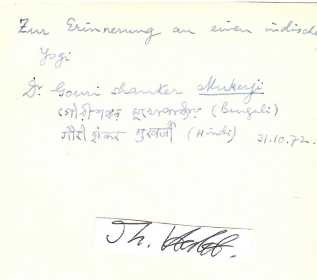 Zur Erinnerung an einen indische
Yogi
Dr. Gouri shanker Mukerji
(Bengali)
गौरी शंकर मुखर्जी (Hindi) 21.10.72.
Th.